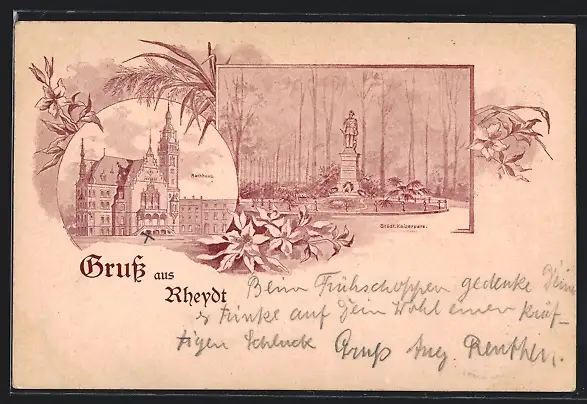 Rathhaus.
Städt. Kaiserpark.
Gruß aus
Rheydt
Beim Frühschoppen gedenke Deiner
& trinke auf Dein Wohl einen kräf-
tigen Schluck Gruß Aug. Renther.